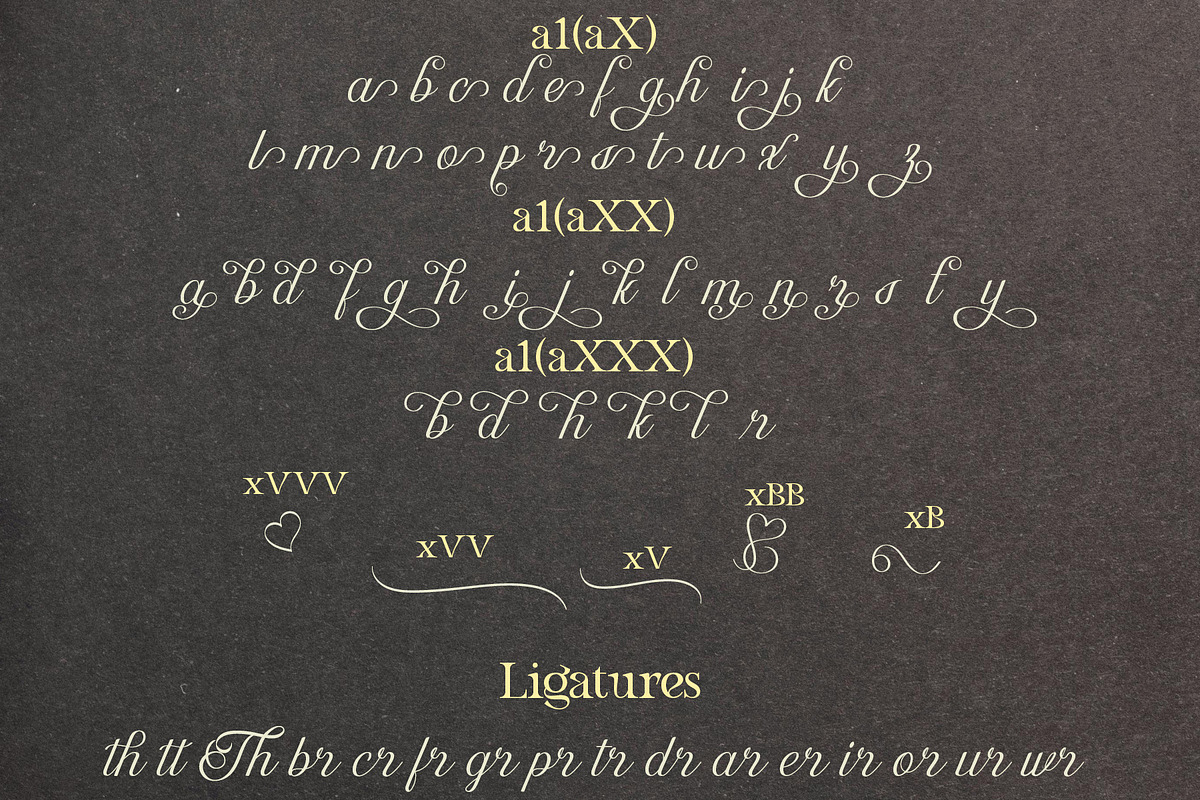 a1(aX)
a b c d e f g h i j k
l m n o p r s t u x y z
a1(aXX)
a b d f g h i j k l m n r s t y
a1(aXXX)
b d h k l r
xVVV
xBB
xB
xVV
xV
Ligatures
th tt Th br cr fr gr pr tr dr ar er ir or ur wr